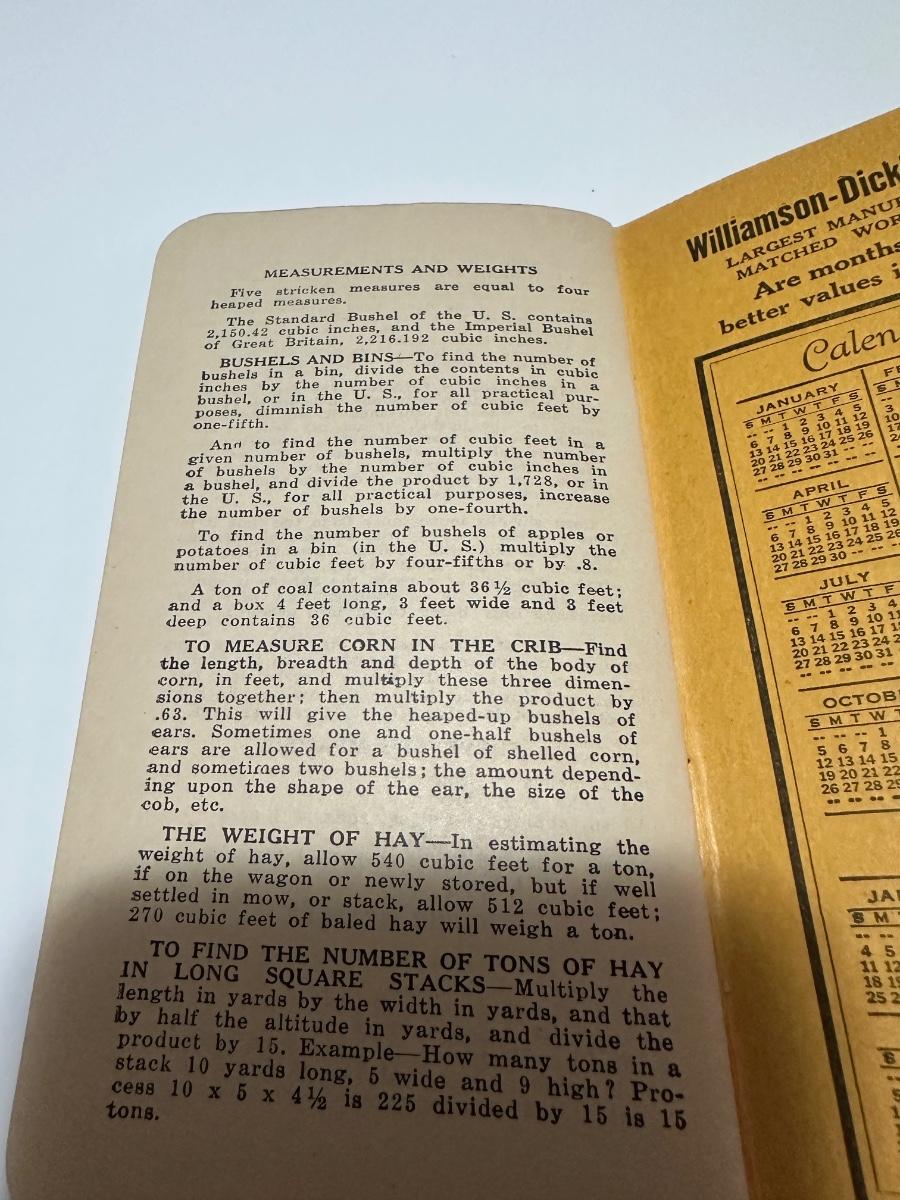 MEASUREMENTS AND WEIGHTS
Five stricken measures are equal to four
heaped measures.
The Standard Bushel of the U. S. contains
2,150.42 cubic inches, and the Imperial Bushel
of Great Britain, 2,216.192 cubic inches.
BUSHELS AND BINS—To find the number of
bushels in a bin, divide the contents in cubic
inches by the number of cubic inches in a
bushel, or in the U. S., for all practical pur-
poses, diminish the number of cubic feet by
one-fifth.
And to find the number of cubic feet in a
given number of bushels, multiply the number
of bushels by the number of cubic inches in
a bushel, and divide the product by 1,728, or in
the U. S., for all practical purposes, increase
the number of bushels by one-fourth.
To find the number of bushels of apples or
potatoes in a bin (in the U. S.) multiply the
number of cubic feet by four-fifths or by .8.
A ton of coal contains about 36½ cubic feet;
and a box 4 feet long, 3 feet wide and 3 feet
deep contains 36 cubic feet.
TO MEASURE CORN IN THE CRIB—Find
the length, breadth and depth of the body of
corn, in feet, and multiply these three dimen-
sions together; then multiply the product by
.63. This will give the heaped-up bushels of
ears. Sometimes one and one-half bushels of
ears are allowed for a bushel of shelled corn,
and sometimes two bushels; the amount depend-
ing upon the shape of the ear, the size of the
cob, etc.
THE WEIGHT OF HAY—In estimating the
weight of hay, allow 540 cubic feet for a ton,
if on the wagon or newly stored, but if well
settled in mow, or stack, allow 512 cubic feet;
270 cubic feet of baled hay will weigh a ton.
TO FIND THE NUMBER OF TONS OF HAY
IN LONG SQUARE STACKS—Multiply the
length in yards by the width in yards, and that
by half the altitude in yards, and divide the
product by 15. Example—How many tons in a
stack 10 yards long, 5 wide and 9 high? Pro-
cess 10 x 5 x 4½ is 225 divided by 15 is 15
tons.
Williamson-Dick
LARGEST MANU
MATCHED WOR
Are months
better values i
Calen
JANUARY
S M T W T F S
-- -- 1 2 3 4 5
6 7 8 9 10 11 12
13 14 15 16 17 18 19
20 21 22 23 24 25 26
27 28 29 30 31 -- --
APRIL
S M T W T F S
-- -- 1 2 3 4 5
6 7 8 9 10 11 12
13 14 15 16 17 18 19
20 21 22 23 24 25 26
27 28 29 30 -- -- --
JULY
S M T W T F
-- -- 1 2 3 4
6 7 8 9 10 11
13 14 15 16 17 18
20 21 22 23 24 25
27 28 29 30 31
OCTOB
S M T W T
-- -- -- 1
5 6 7 8
12 13 14 15
19 20 21 22
26 27 28 29
JA
S M
4 5
11 12
18 19
25 2
S